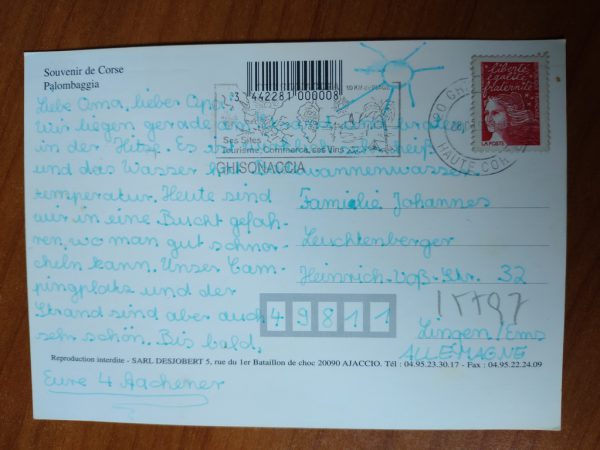 Souvenir de Corse
Palombaggia
3 442281 000008
Liebe Oma, lieber Opa!
Wir liegen gerade am Strand und braten
in der Hitze. Es ist heiß
und das Wasser hat Badewannenwasser-
temperatur. Heute sind
wir in eine Bucht gefah-
ren, wo man gut schnor-
cheln kann. Unser Cam-
pingplatz und der
Strand sind aber auch
sehr schön. Bis bald,
Eure 4 Aachener
Ses Sites
Tourisme, Commerce, ses Vins
GHISONACCIA
HAUTE COR
Liberté
égalité
fraternité
LA POSTE
Familie Johannes
Leuchtenberger
Heinrich-Voß-Str. 32
49811
Lingen/Ems
ALLEMAGNE
Reproduction interdite - SARL DESJOBERT 5, rue du 1er Bataillon de choc 20090 AJACCIO. Tél : 04.95.23.30.17 - Fax : 04.95.22.24.09